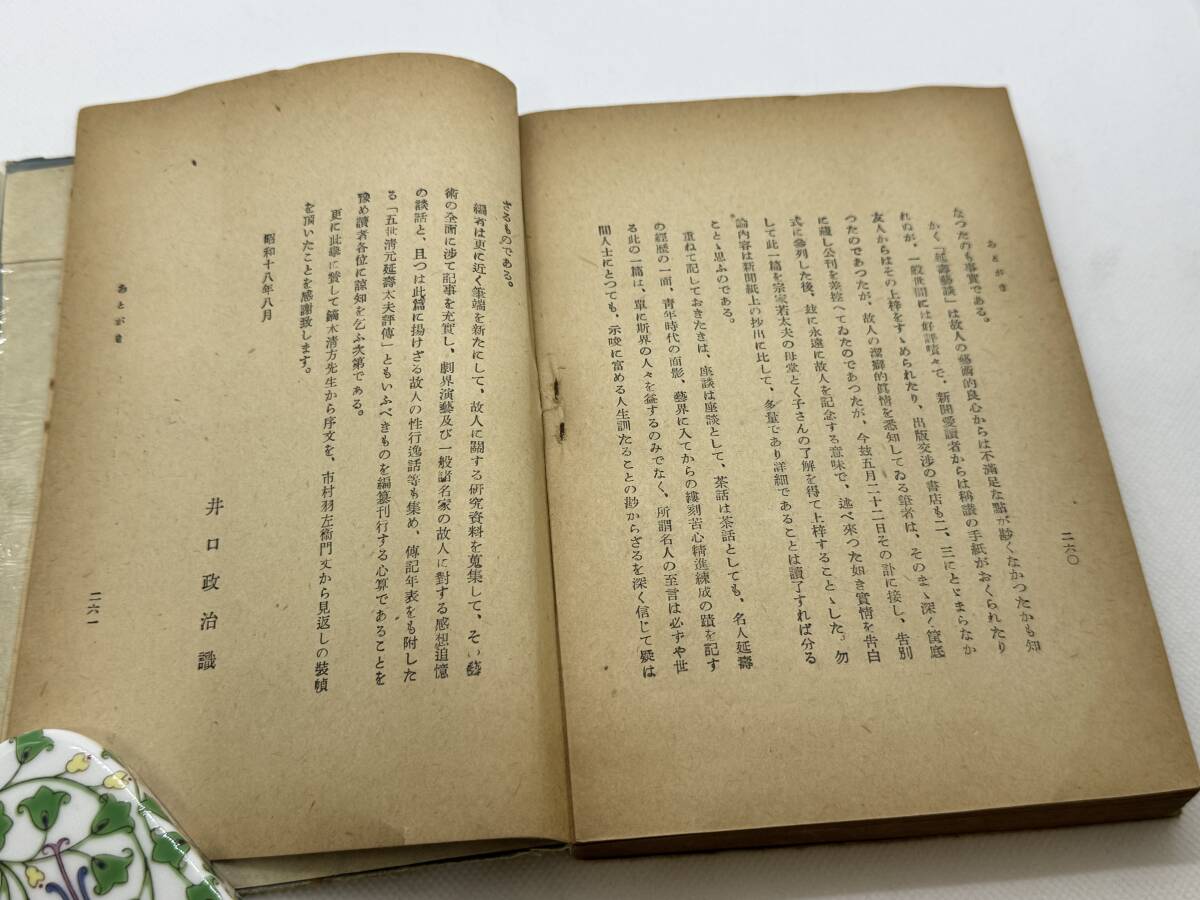 あとがき
二六〇
なつたのも事實である。
かく「延壽藝談」は故人の藝術的良心からは不滿足な點が尠くなかつたかも知
れぬが、一般世間には好評嘖々で、新聞愛讀者からは稱讃の手紙がおくられたり
友人からはその上梓をすゝめられたり、出版交渉の書店も二、三にとゞまらなか
つたのであつたが、故人の潔癖的眞情を悉知してゐる筆者は、そのまゝ深く筐底
に藏し公刊を差控へてゐたのであつたが、今玆五月二十二日その訃に接し、告別
式に參列した後、玆に永遠に故人を記念する意味で、述べ來つた如き實情を告白
して此一篇を宗家若太夫の母堂とく子さんの了解を得て上梓することゝした。勿
論内容は新聞紙上の抄出に比して、多量であり詳細であることは讀了すれば分る
ことゝ思ふのである。
重ねて記しておきたきは、座談は座談として、茶話は茶話としても、名人延壽
の經歴の一面、青年時代の面影、藝界に入てからの縷刻苦心精進練成の蹟を記す
る此の一篇は、單に斯界の人々を益するのみでなく、所謂名人の至言は必ずや世
間人士にとつても、示唆に富める人生訓たることの尠からざるを深く信じて疑は
ざるものである。
編者は更に近く筆端を新たにして、故人に關する研究資料を蒐集して、その藝
術の全面に渉て記事を充實し、劇界演藝及び一般諸名家の故人に對する感想追憶
の談話と、且つは此篇に揚げざる故人の性行逸話等も集め、傳記年表をも附した
る「五世清元延壽太夫評傳」ともいふべきものを編纂刊行する心算であることを
豫め讀者各位に諒知を乞ふ次第である。
更に此擧に贊して鏑木清方先生から序文を、市村羽左衞門丈から見返しの裝幀
を頂いたことを感謝致します。
昭和十八年八月
井口政治識
あとがき
二六一